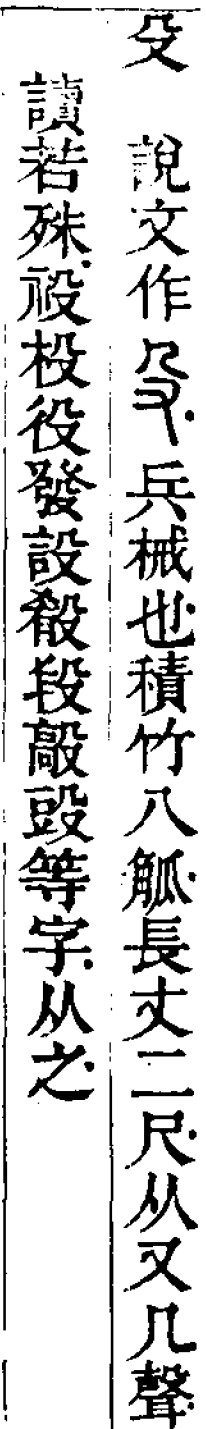 殳 說文作殳兵械也積竹八觚長丈二尺从又几聲
讀若殊祋杸役發設殺段毃豛等字从之